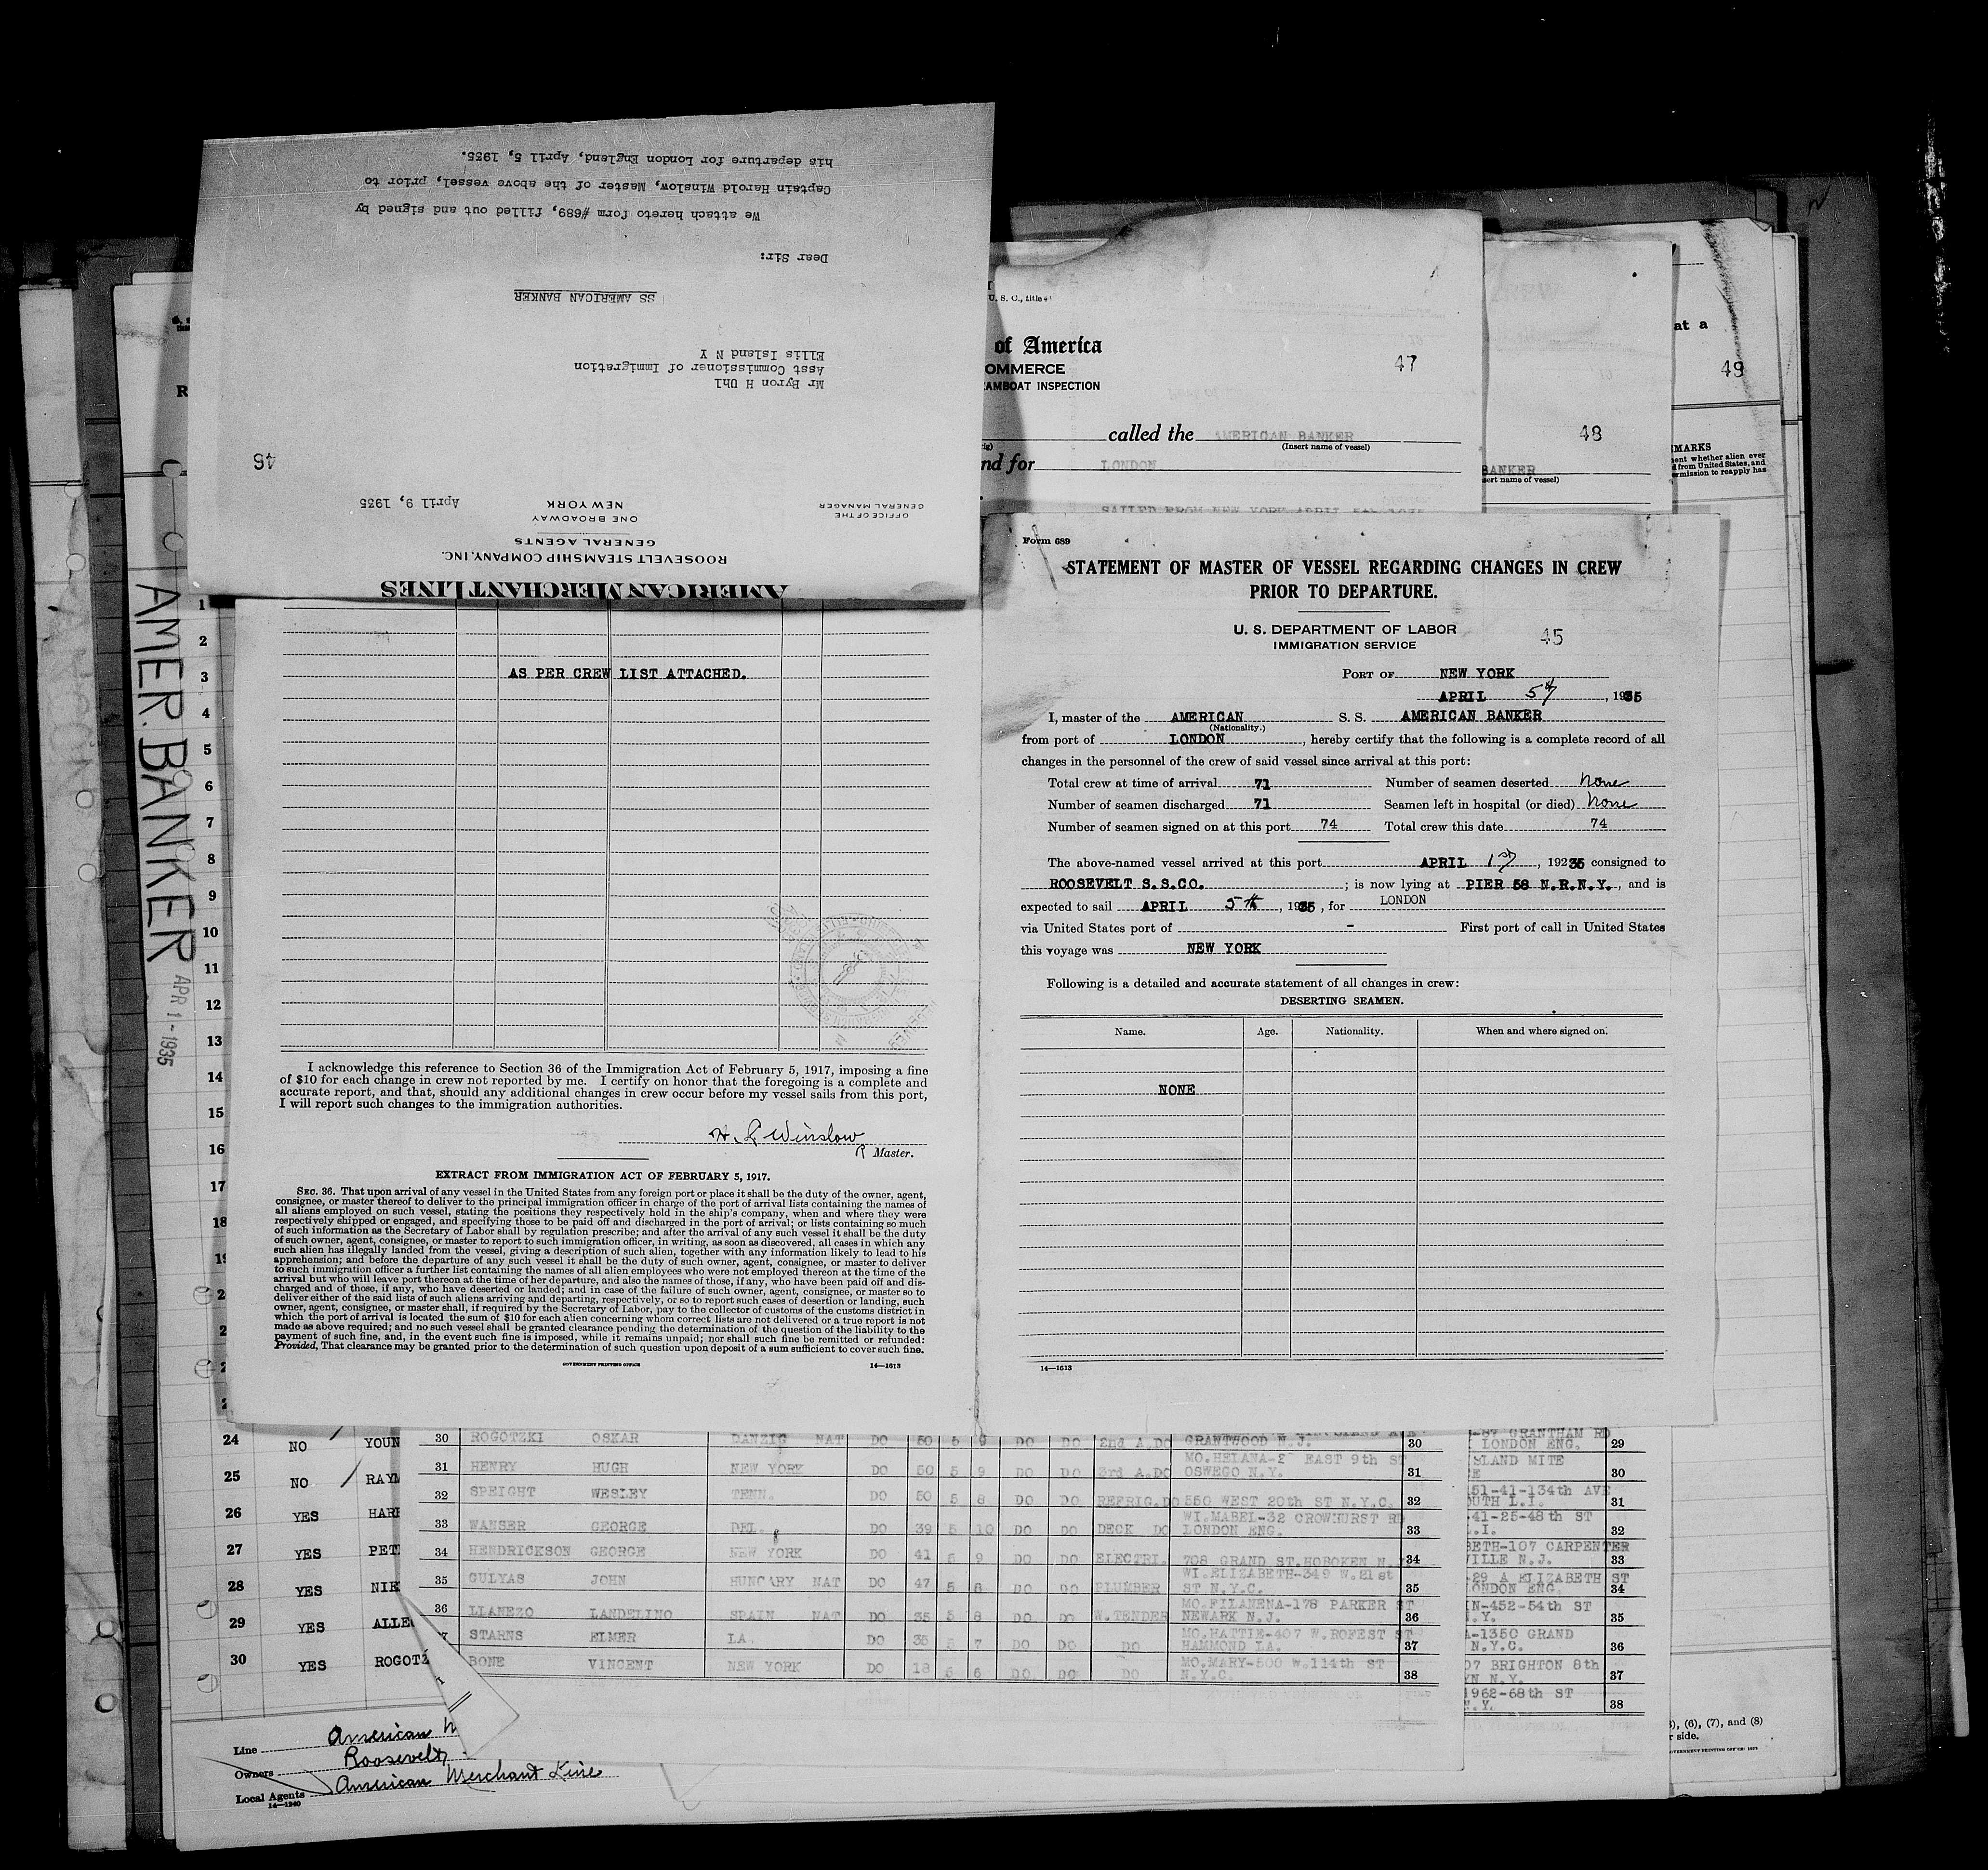 AMERICAN MERCHANT LINES
ROOSEVELT STEAMSHIP COMPANY, INC.
GENERAL AGENTS
ONE BROADWAY
NEW YORK
OFFICE OF THE
GENERAL MANAGER
April 9, 1935
46
Mr Byron H Uhl
Asst Commissioner of Immigration
Ellis Island N Y
SS AMERICAN BANKER
Dear Sir:
We attach hereto form #689, filled out and signed by
Captain Harold Winslow, Master of the above vessel, prior to
his departure for London England, April 5, 1935.
U. S. C., title 4
of America
OMMERCE
AMBOAT INSPECTION
47
called the AMERICAN BANKER
(Insert name of vessel)
nd for LONDON
SAILED FROM NEW YORK APRIL 5th 1935
48
BANKER
sert name of vessel)
at a
49
MARKS
ent whether alien ever
d from United States, and
ermission to reapply has
AMER. BANKER APR 1 - 1935
1
2
3
4
5
6
7
8
9
10
11
12
13
14
15
16
17
18
AS PER CREW LIST ATTACHED.
I acknowledge this reference to Section 36 of the Immigration Act of February 5, 1917, imposing a fine
of $10 for each change in crew not reported by me. I certify on honor that the foregoing is a complete and
accurate report, and that, should any additional changes in crew occur before my vessel sails from this port,
I will report such changes to the immigration authorities.
H. R. Winslow
Master.
EXTRACT FROM IMMIGRATION ACT OF FEBRUARY 5, 1917.
SEC. 36. That upon arrival of any vessel in the United States from any foreign port or place it shall be the duty of the owner, agent,
consignee, or master thereof to deliver to the principal immigration officer in charge of the port of arrival lists containing the names of
all aliens employed on such vessel, stating the positions they respectively hold in the ship's company, when and where they were
respectively shipped or engaged, and specifying those to be paid off and discharged in the port of arrival; or lists containing so much
of such information as the Secretary of Labor shall by regulation prescribe; and after the arrival of any such vessel it shall be the duty
of such owner, agent, consignee, or master to report to such immigration officer, in writing, as soon as discovered, all cases in which any
such alien has illegally landed from the vessel, giving a description of such alien, together with any information likely to lead to his
apprehension; and before the departure of any such vessel it shall be the duty of such owner, agent, consignee, or master to deliver
to such immigration officer a further list containing the names of all alien employees who were not employed thereon at the time of the
arrival but who will leave port thereon at the time of her departure, and also the names of those, if any, who have been paid off and dis-
charged and of those, if any, who have deserted or landed; and in case of the failure of such owner, agent, consignee, or master so to
deliver either of the said lists of such aliens arriving and departing, respectively, or so to report such cases of desertion or landing, such
owner, agent, consignee, or master shall, if required by the Secretary of Labor, pay to the collector of customs of the customs district in
which the port of arrival is located the sum of $10 for each alien concerning whom correct lists are not delivered or a true report is not
made as above required; and no such vessel shall be granted clearance pending the determination of the question of the liability to the
payment of such fine, and, in the event such fine is imposed, while it remains unpaid; nor shall such fine be remitted or refunded:
Provided, That clearance may be granted prior to the determination of such question upon deposit of a sum sufficient to cover such fine.
GOVERNMENT PRINTING OFFICE 14—1613
Form 689
STATEMENT OF MASTER OF VESSEL REGARDING CHANGES IN CREW
PRIOR TO DEPARTURE.
U. S. DEPARTMENT OF LABOR
IMMIGRATION SERVICE
45
PORT OF NEW YORK
APRIL 5th, 1935
I, master of the AMERICAN S. S. AMERICAN BANKER
(Nationality.)
from port of LONDON, hereby certify that the following is a complete record of all
changes in the personnel of the crew of said vessel since arrival at this port:
Total crew at time of arrival 71 Number of seamen deserted None
Number of seamen discharged 71 Seamen left in hospital (or died) None
Number of seamen signed on at this port 74 Total crew this date 74
The above-named vessel arrived at this port APRIL 1st, 19235 consigned to
ROOSEVELT S.S.CO. ; is now lying at PIER 58 N.R.N.Y., and is
expected to sail APRIL 5th, 1935, for LONDON
via United States port of - First port of call in United States
this voyage was NEW YORK
Following is a detailed and accurate statement of all changes in crew:
DESERTING SEAMEN.
Name. Age. Nationality. When and where signed on.
NONE
14—1613
24 NO YOUN
25 NO RAYM
26 YES HARR
27 YES PET
28 YES NIE
29 YES ALLE
30 YES ROGOTZ
30 ROGOTZKI OSKAR DANZIG NAT DO 50 5 9 DO DO 2nd A.DO GRANTWOOD N.J. 30
31 HENRY HUGH NEW YORK DO 50 5 9 DO DO 3rd A.DO MO.HELANA-2 EAST 9th ST OSWEGO N.Y. 31
32 SPEIGHT WESLEY TENN. DO 50 5 8 DO DO REFRIG.DO 550 WEST 20th ST N.Y.C. 32
33 WANSER GEORGE DEL. DO 39 5 10 DO DO DECK DO WI.MABEL-32 CROWHURST RD LONDON ENG. 33
34 HENDRICKSON GEORGE NEW YORK DO 41 5 9 DO DO ELECTRI. 708 GRAND ST.HOBOKEN N. 34
35 GULYAS JOHN HUNGARY NAT DO 47 5 8 DO DO PLUMBER WI.ELIZABETH-349 W.21st ST N.Y.C. 35
36 LLANEZO LANDELINO SPAIN NAT DO 35 5 8 DO DO W.TENDER MO.FILANENA-178 PARKER ST NEWARK N.J. 36
7 STARNS ELMER LA. DO 35 5 7 DO DO DO MO.HATTIE-407 W.ROFEST ST HAMMOND LA. 37
BONE VINCENT NEW YORK DO 18 5 6 DO DO DO MO.MARY-500 W.114th ST N.Y.C. 38
-87 GRANTHAM RD
LONDON ENG. 29
ISLAND MITE
30
151-41-134th AVE
OUTH L.I. 31
41-25-48th ST
.I. 32
BETH-107 CARPENTER
VILLE N.J. 33
-29 A ELIZABETH ST
LONDON ENG. 34
IN-452-54th ST
.Y. 35
A-1350 GRAND
N.Y.C. 36
07 BRIGHTON 8th
YN N.Y. 37
1962-68th ST
.Y. 38
Line American M
Owners Roosevelt
Local Agents American Merchant Line
14—1240
), (6), (7), and (8)
r side.